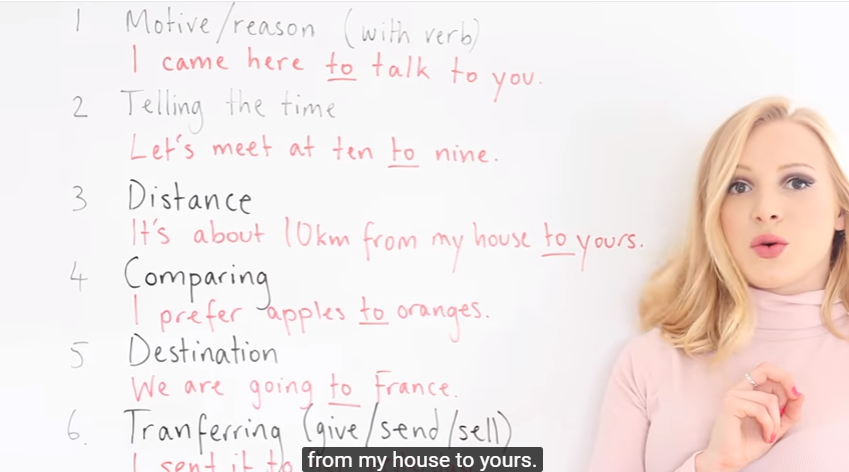 1 Motive/reason (with verb)
I came here to talk to you.
2 Telling the time
Let's meet at ten to nine.
3 Distance
It's about 10km from my house to yours.
4 Comparing
I prefer apples to oranges.
5 Destination
We are going to France.
6. Tranferring (give/send/sell)
I sent it to
from my house to yours.